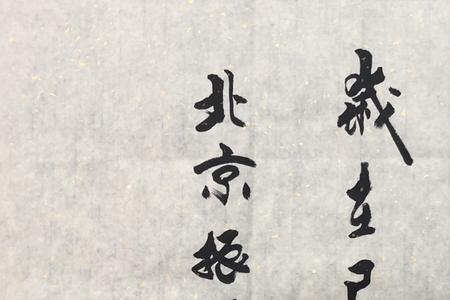 歲在己
北京振